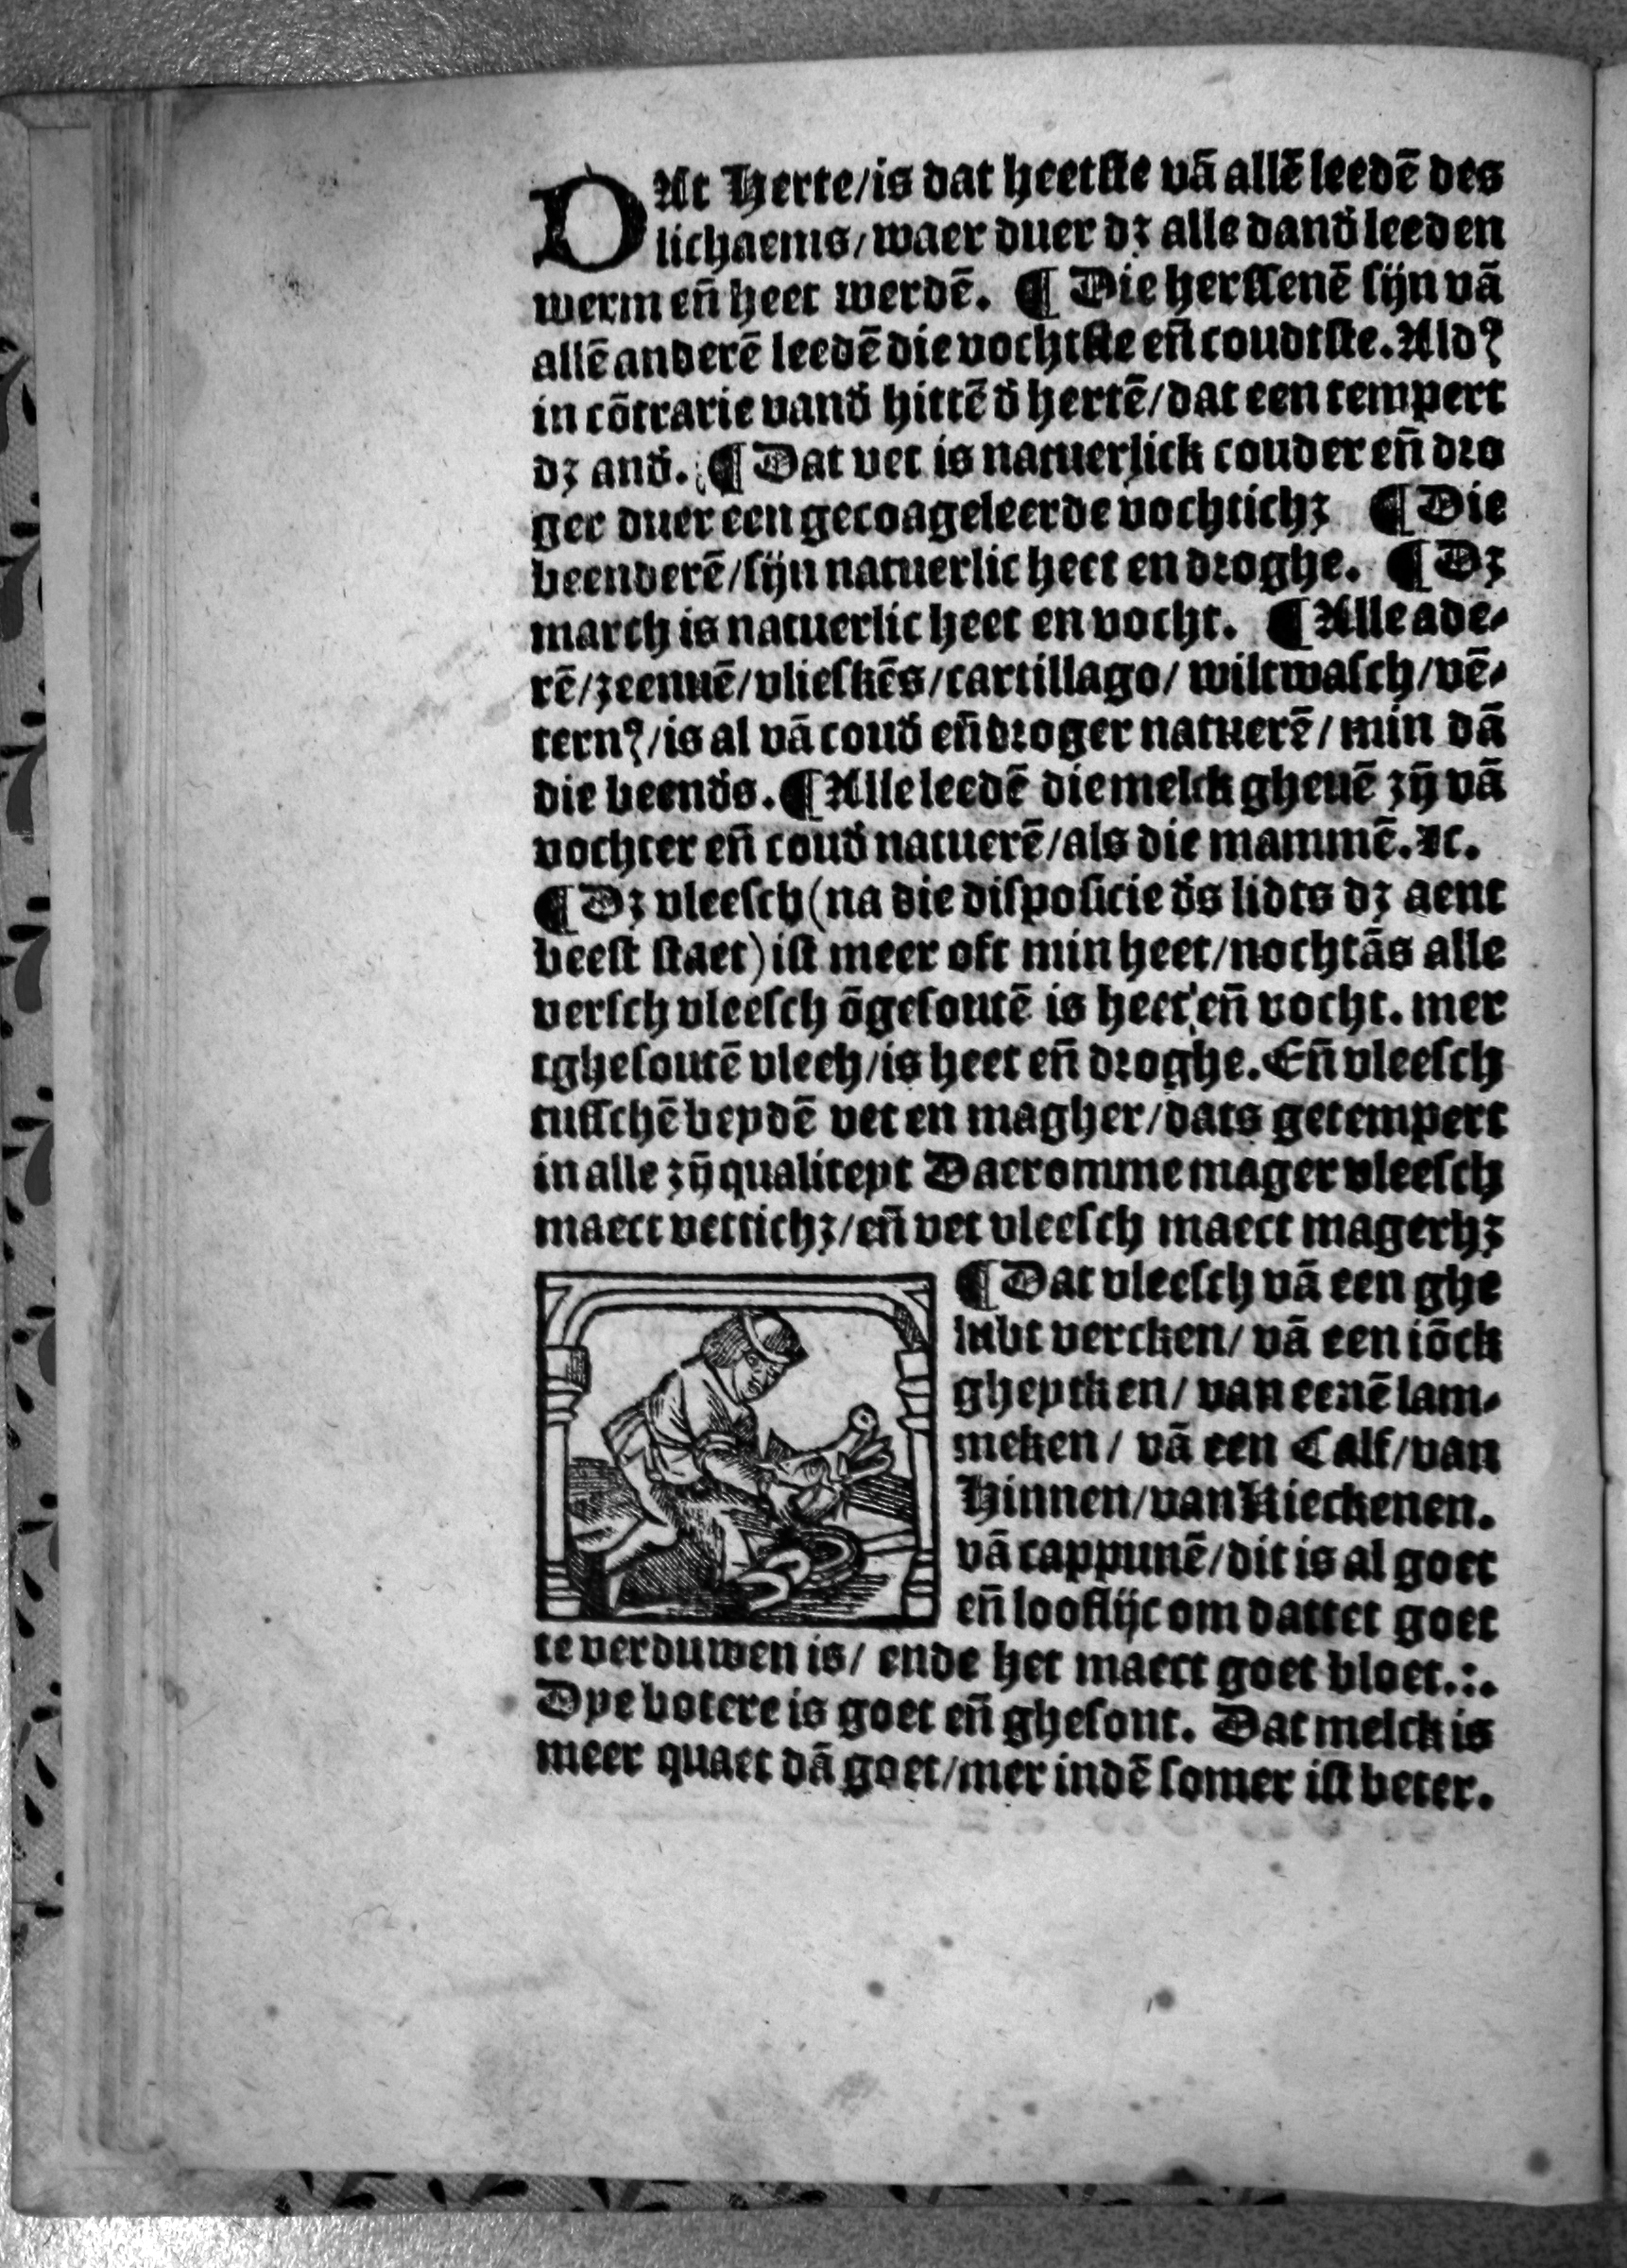 DAt Herte/is dat heetste vā allē leedē des
lichaems/waer duer dʒ alle dand̄ leeden
werm en̄ heet werdē. ¶ Die herssenē sijn vā
allē anderē leedē die vochtste en̄ coudtste. Alꝺꝰ
in cōtrarie vand̄ hittē d̄ hertē/dat een tempert
dʒ and̄. ¶ Dat vet is natuerlick couder en̄ dro
ger duer een gecoageleerde vochtichʒ ¶ Die
beenderē/sijn natuerlic heet en droghe. ¶ Dʒ
march is natuerlic heet en vocht. ¶ Alle ade⸗
rē/zeenuē/vlieskēs/cartillago/wiltwasch/vē⸗
ternꝰ/is al vā coud̄ en̄ droger natuerē/min dā
die beend̄s. ¶ Alle leedē die melck gheuē zij̄ vā
vochter en̄ coud̄ natuerē/als die mammē. ⁊c.
¶ Dʒ vleesch (na die disposicie d̄s lidts dʒ aent
beest staet) ist meer oft min heet/nochtās alle
versch vleesch ōgesoutē is heet en̄ vocht. mer
tghesoutē vleeh/is heet en̄ droghe. En̄ vleesch
tusschē beydē vet en magher/dats getempert
in alle zij̄ qualiteyt Daeromme mager vleesch
maect vettichʒ/en̄ vet vleesch maect magerhʒ
¶ Dat vleesch vā een ghe
lubt vercken/vā een iōck
gheytken/van eenē lam⸗
meken/vā een Calf/van
Hinnen/van Kieckenen.
vā cappunē/dit is al goet
en̄ looflijc om dattet goet
te verduwen is/ende het maect goet bloet.:.
Dye botere is goet en̄ ghesont. Dat melck is
meer quaet dā goet/mer indē somer ist beter.